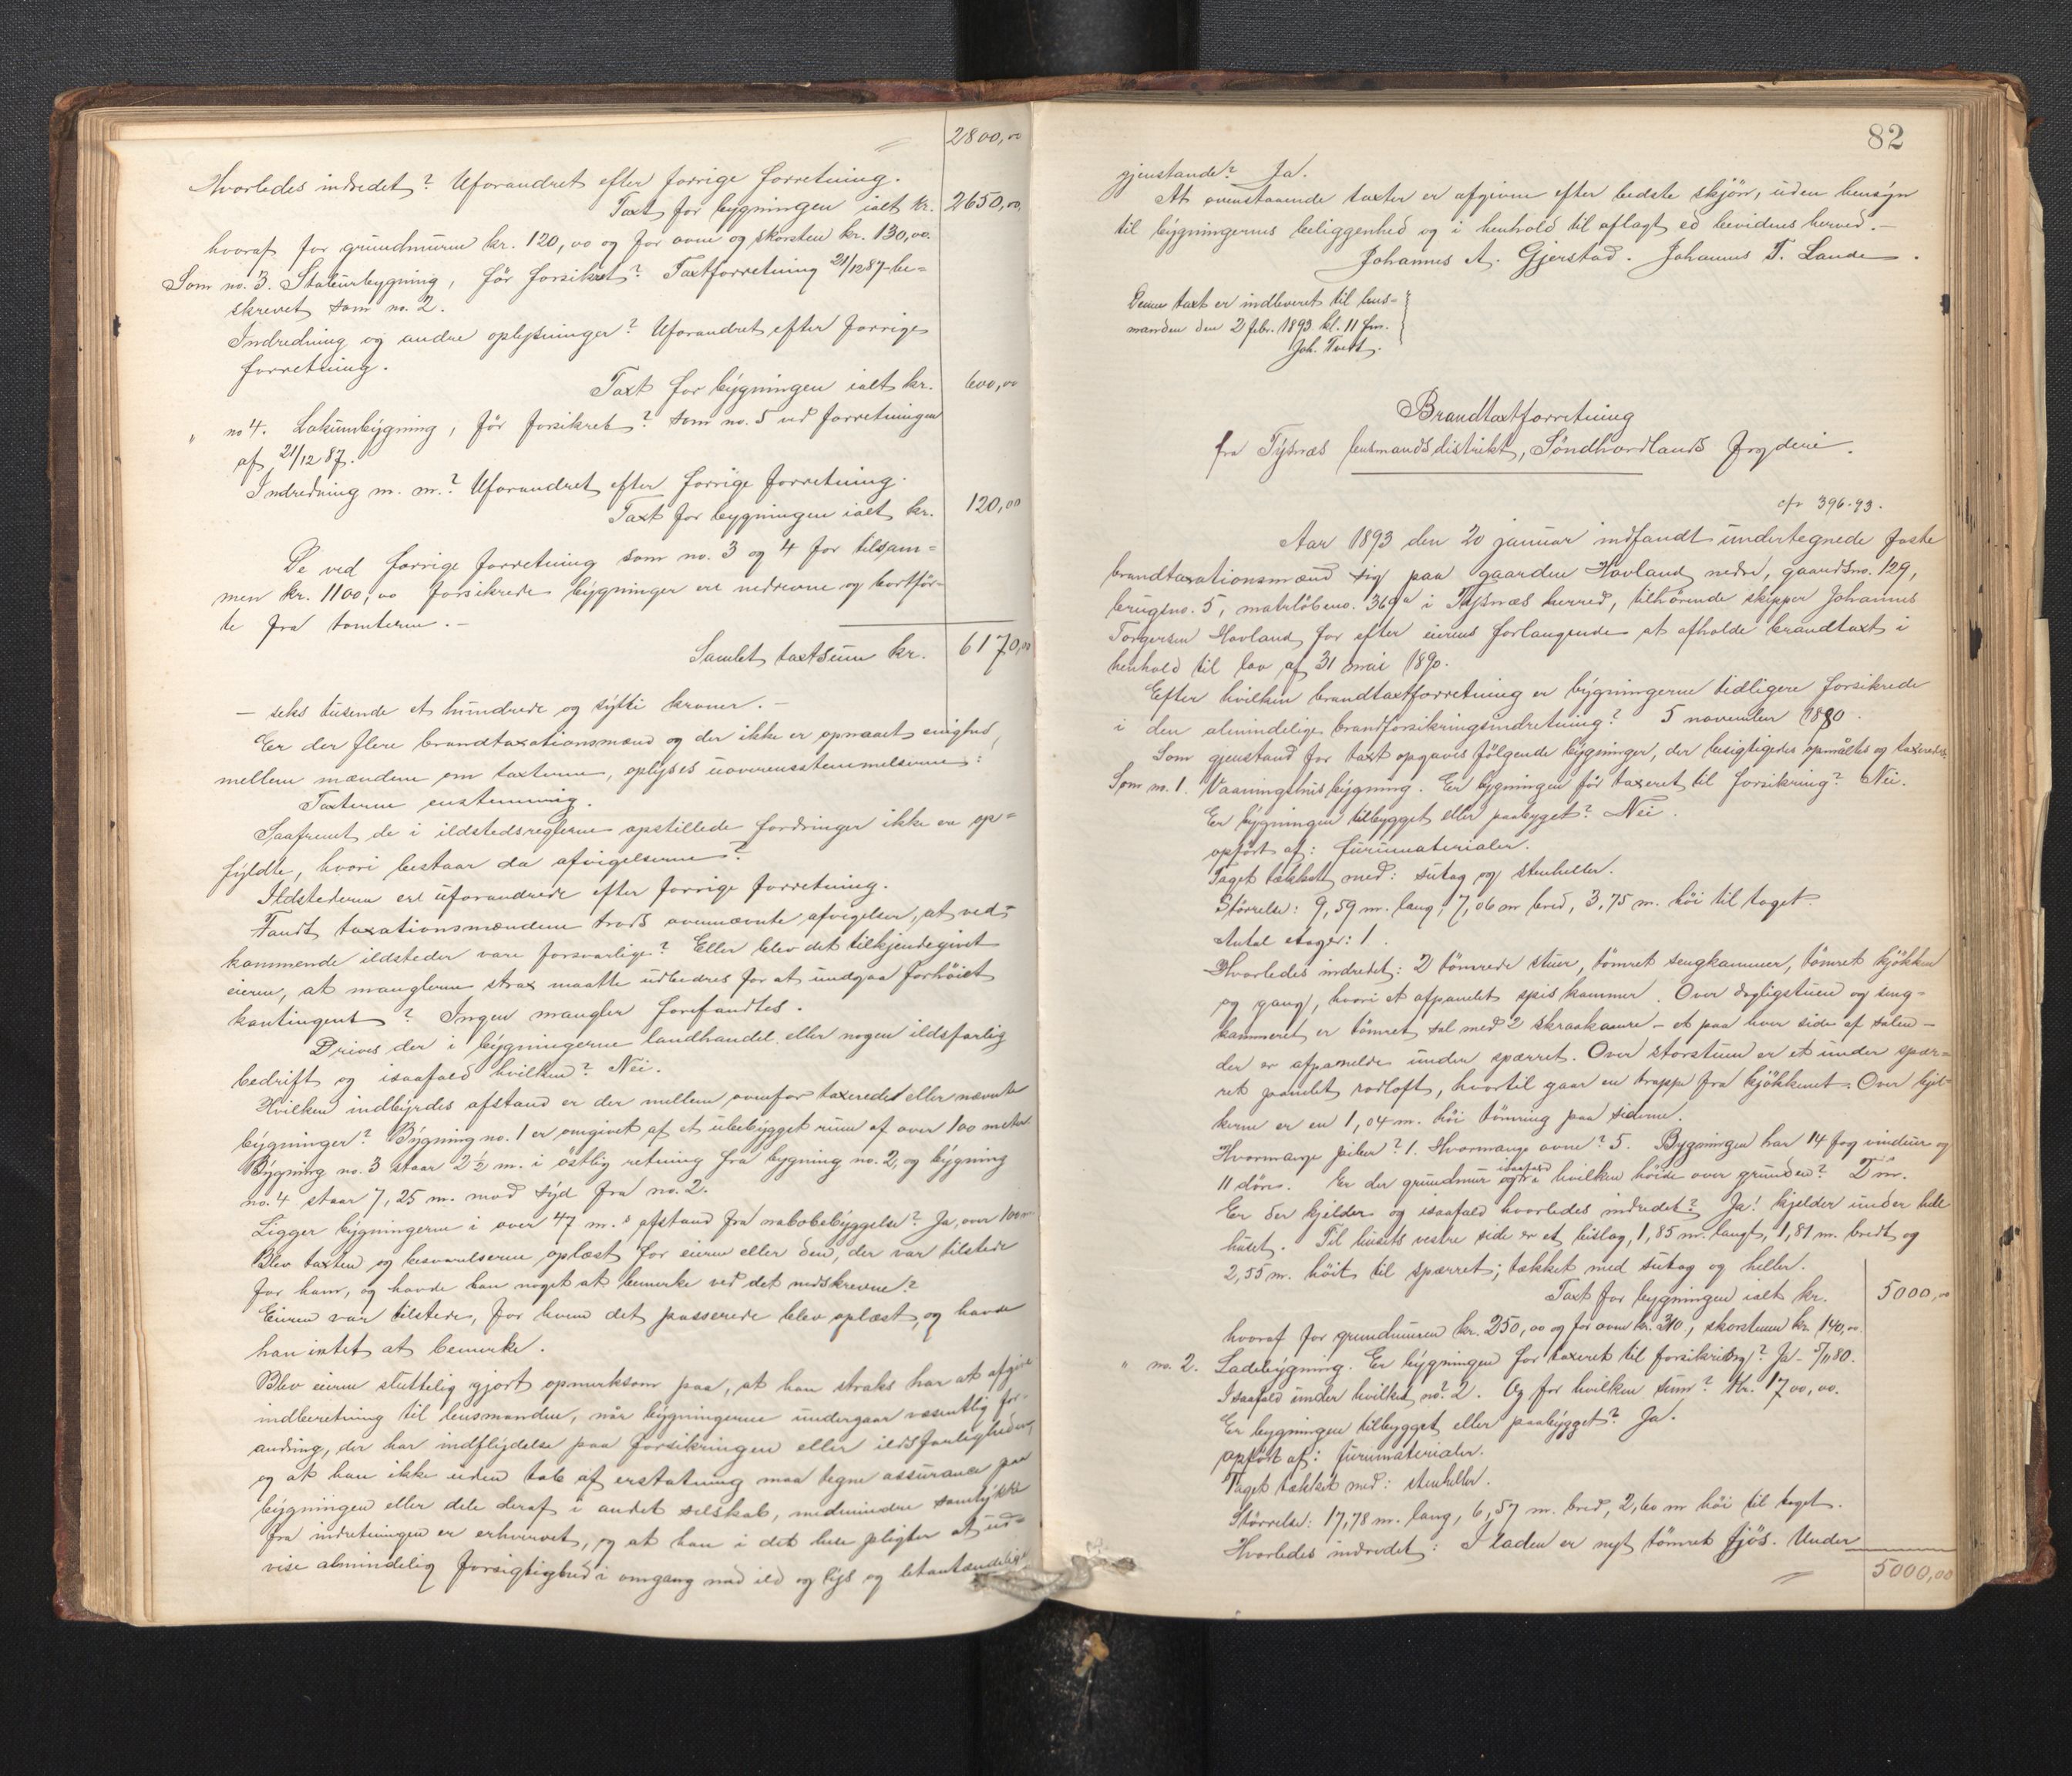 2800,00
Hvorledes indredet? Uforandret efter forrige forretning.
Taxt for bygningen ialt kr. 2650,00
hvoraf for grundmuren kr. 120,00 og for ovne og skorsten kr. 130,00.
Som no. 3. Stabursbygning, før forsikret? Taxtforretning 21/12 87 be-
skrevet som no. 2.
Indredning og andre oplysninger? Uforandret efter forrige
forretning.
Taxt for bygningen ialt kr. 600,00
" no 4. Lokumbygning, før forsikret? som no. 5 ved forretningen
af 21/12 87.
Indredning m. m.? Uforandret efter forrige forretning.
Taxt for bygningen ialt kr. 120,00
De ved forrige forretning som no. 3 og 4 for tilsam-
men kr. 1100,00 forsikrede bygninger ere nedrevne og bortfør-
te fra tomterne. -
Samlet taxtsum kr. 6170,00
- seks tusende et hundrede og sytti kroner. -
Er der flere brandtaxationsmænd og der ikke er opnaaet enighed
mellem mændene om taxterne, oplyses uoverensstemmelserne:
Taxterne enstemmig.
Saafremt de i ildstedsreglerne opstillede fordringer ikke ere op-
fyldte, hvori bestaar da afvigelserne?
Ildstederne ere uforandrede efter forrige forretning.
Fandt taxationsmændene trods ovennævnte afvigelser, at ved-
kommende ildsteder vare forsvarlige? Eller blev det tilkjendegivet
eieren, at manglerne strax maatte udbedres for at undgaa forhøiet
kontingent? Ingen mangler forefandtes.
Drives der i bygningerne landhandel eller nogen ildsfarlig
bedrift og isaafald hvilken? Nei.
Hvilken indbyrdes afstand er der mellem ovenfor taxerede eller nævnte
bygninger? Bygning no. 1 er omgivet af et ubebygget rum af over 100 meter
Bygning no. 3 staar 2½ m. i østlig retning fra bygning no. 2, og bygning
no. 4 staar 7,25 m. mod syd fra no. 2.
Ligger bygningerne i over 47 m.s afstand fra nabobebyggelse? Ja, over 100 m.
Blev taxten og besvarelserne oplæst for eieren eller den, der var tilstede
for ham, og havde han noget at bemerke ved det nedskrevne?
Eieren var tilstede, for hvem det passerede blev oplæst, og havde
han intet at bemerke.
Blev eieren sluttelig gjort opmerksom paa, at han straks har at afgive
indberetning til lensmanden, når bygningerne undergaar væsentlig for-
andring, der har indflydelse paa forsikringen eller ildsfarligheden,
og at han ikke uden tab af erstatning maa tegne assurance paa
bygningen eller dele deraf i andet selskab, medmindre samtykke
fra indretningen er erhvervet, og at han i det hele pligter at ud-
vise almindelig forsigtighed i omgang med ild og lys og letantændelige
82
gjenstande? Ja.
At ovenstaaende taxter er afgivne efter bedste skjøn, uden hensyn
til bygningernes beliggenhed og i henhold til aflagt ed bevidnes herved. -
Johannes A. Gjerstad. Johannes T. Lande.
Denne taxt er indleveret til lens-
manden den 2 febr. 1893 kl. 11 fm.
Joh. Tvedt.
Brandtaxtforretning
fra Tysnæs lensmandsdistrikt, Søndhordlands fogderi.
cfr 396-93.
Aar 1893 den 20 januar indfandt undertegnede faste
brandtaxationsmænd sig paa gaarden Hovland nedre, gaardsno. 129,
brugsno. 5, matrløbeno. 369a i Tysnæs herred, tilhørende skipper Johannes
Torgersen Hovland for efter eierens forlangende at afholde brandtaxt i
henhold til lov af 31 mai 1890.
Efter hvilken brandtaxtforretning er bygningerne tidligere forsikrede
i den almindelige brandforsikringsindretning? 5 november 1880.
Som gjenstand for taxt opgaves følgende bygninger, der besigtigedes opmåltes og taxeredes.
Som no. 1. Vaaningshusbygning. Er bygningen før taxeret til forsikring? Nei.
Er bygningen tilbygget eller paabyget? Nei.
opført af: furumaterialer.
Taget tækket med: sutag og stenheller.
Størrelse: 9,59 m. lang, 7,06 m bred, 3,75 m. høi til taget.
Antal etager: 1.
Hvorledes indredet: 2 tømrede stuer, tømret sengkammer, tømret kjøkken
og gang, hvori et afpanelet spiskammer. Over dagligstuen og seng-
kammeret er tømret sal med 2 skraakamre - et paa hver side af salen -
der er afpanelede under spærret. Over storstuen er et under spær-
ret panelet rodloft, hvortil gaar en trappe fra kjøkkenet. Over kjøk-
kenet er en 1,04 m. høi tømring paa siderne.
Hvormange piber? 1. Hvormange ovne? 5. Bygningen har 14 fag vinduer og
11 døre. Er der grundmur og isaafald i hvilken høide over grunden? 2 m.
Er der kjelder og isaafald hvorledes indredet? Ja! kjelder under hele
huset. Til husets vestre side er et bislag, 1,85 m. langt, 1,81 m. bredt og
2,55 m. høit til spærret; tækket med sutag og heller.
Taxt for bygningen ialt kr. 5000,00
hvoraf for grundmuren kr. 250,00 og for ovne kr. 310, skorstenen kr. 140,00.
" no. 2. Ladebygning. Er bygningen før taxeret til forsikring? Ja - 5/11 80.
Isaafald under hvilket no? 2. Og for hvilken sum? Kr. 1700,00.
Er bygningen tilbygget eller paabygget? Ja.
opført af: furumaterialer.
Taget tækket med: stenheller.
Størrelse: 17,78 m. lang, 6,57 m. bred, 2,60 m høi til taget.
Hvorledes indredet: I laden er nyt tømret fjøs. Under
5000,00